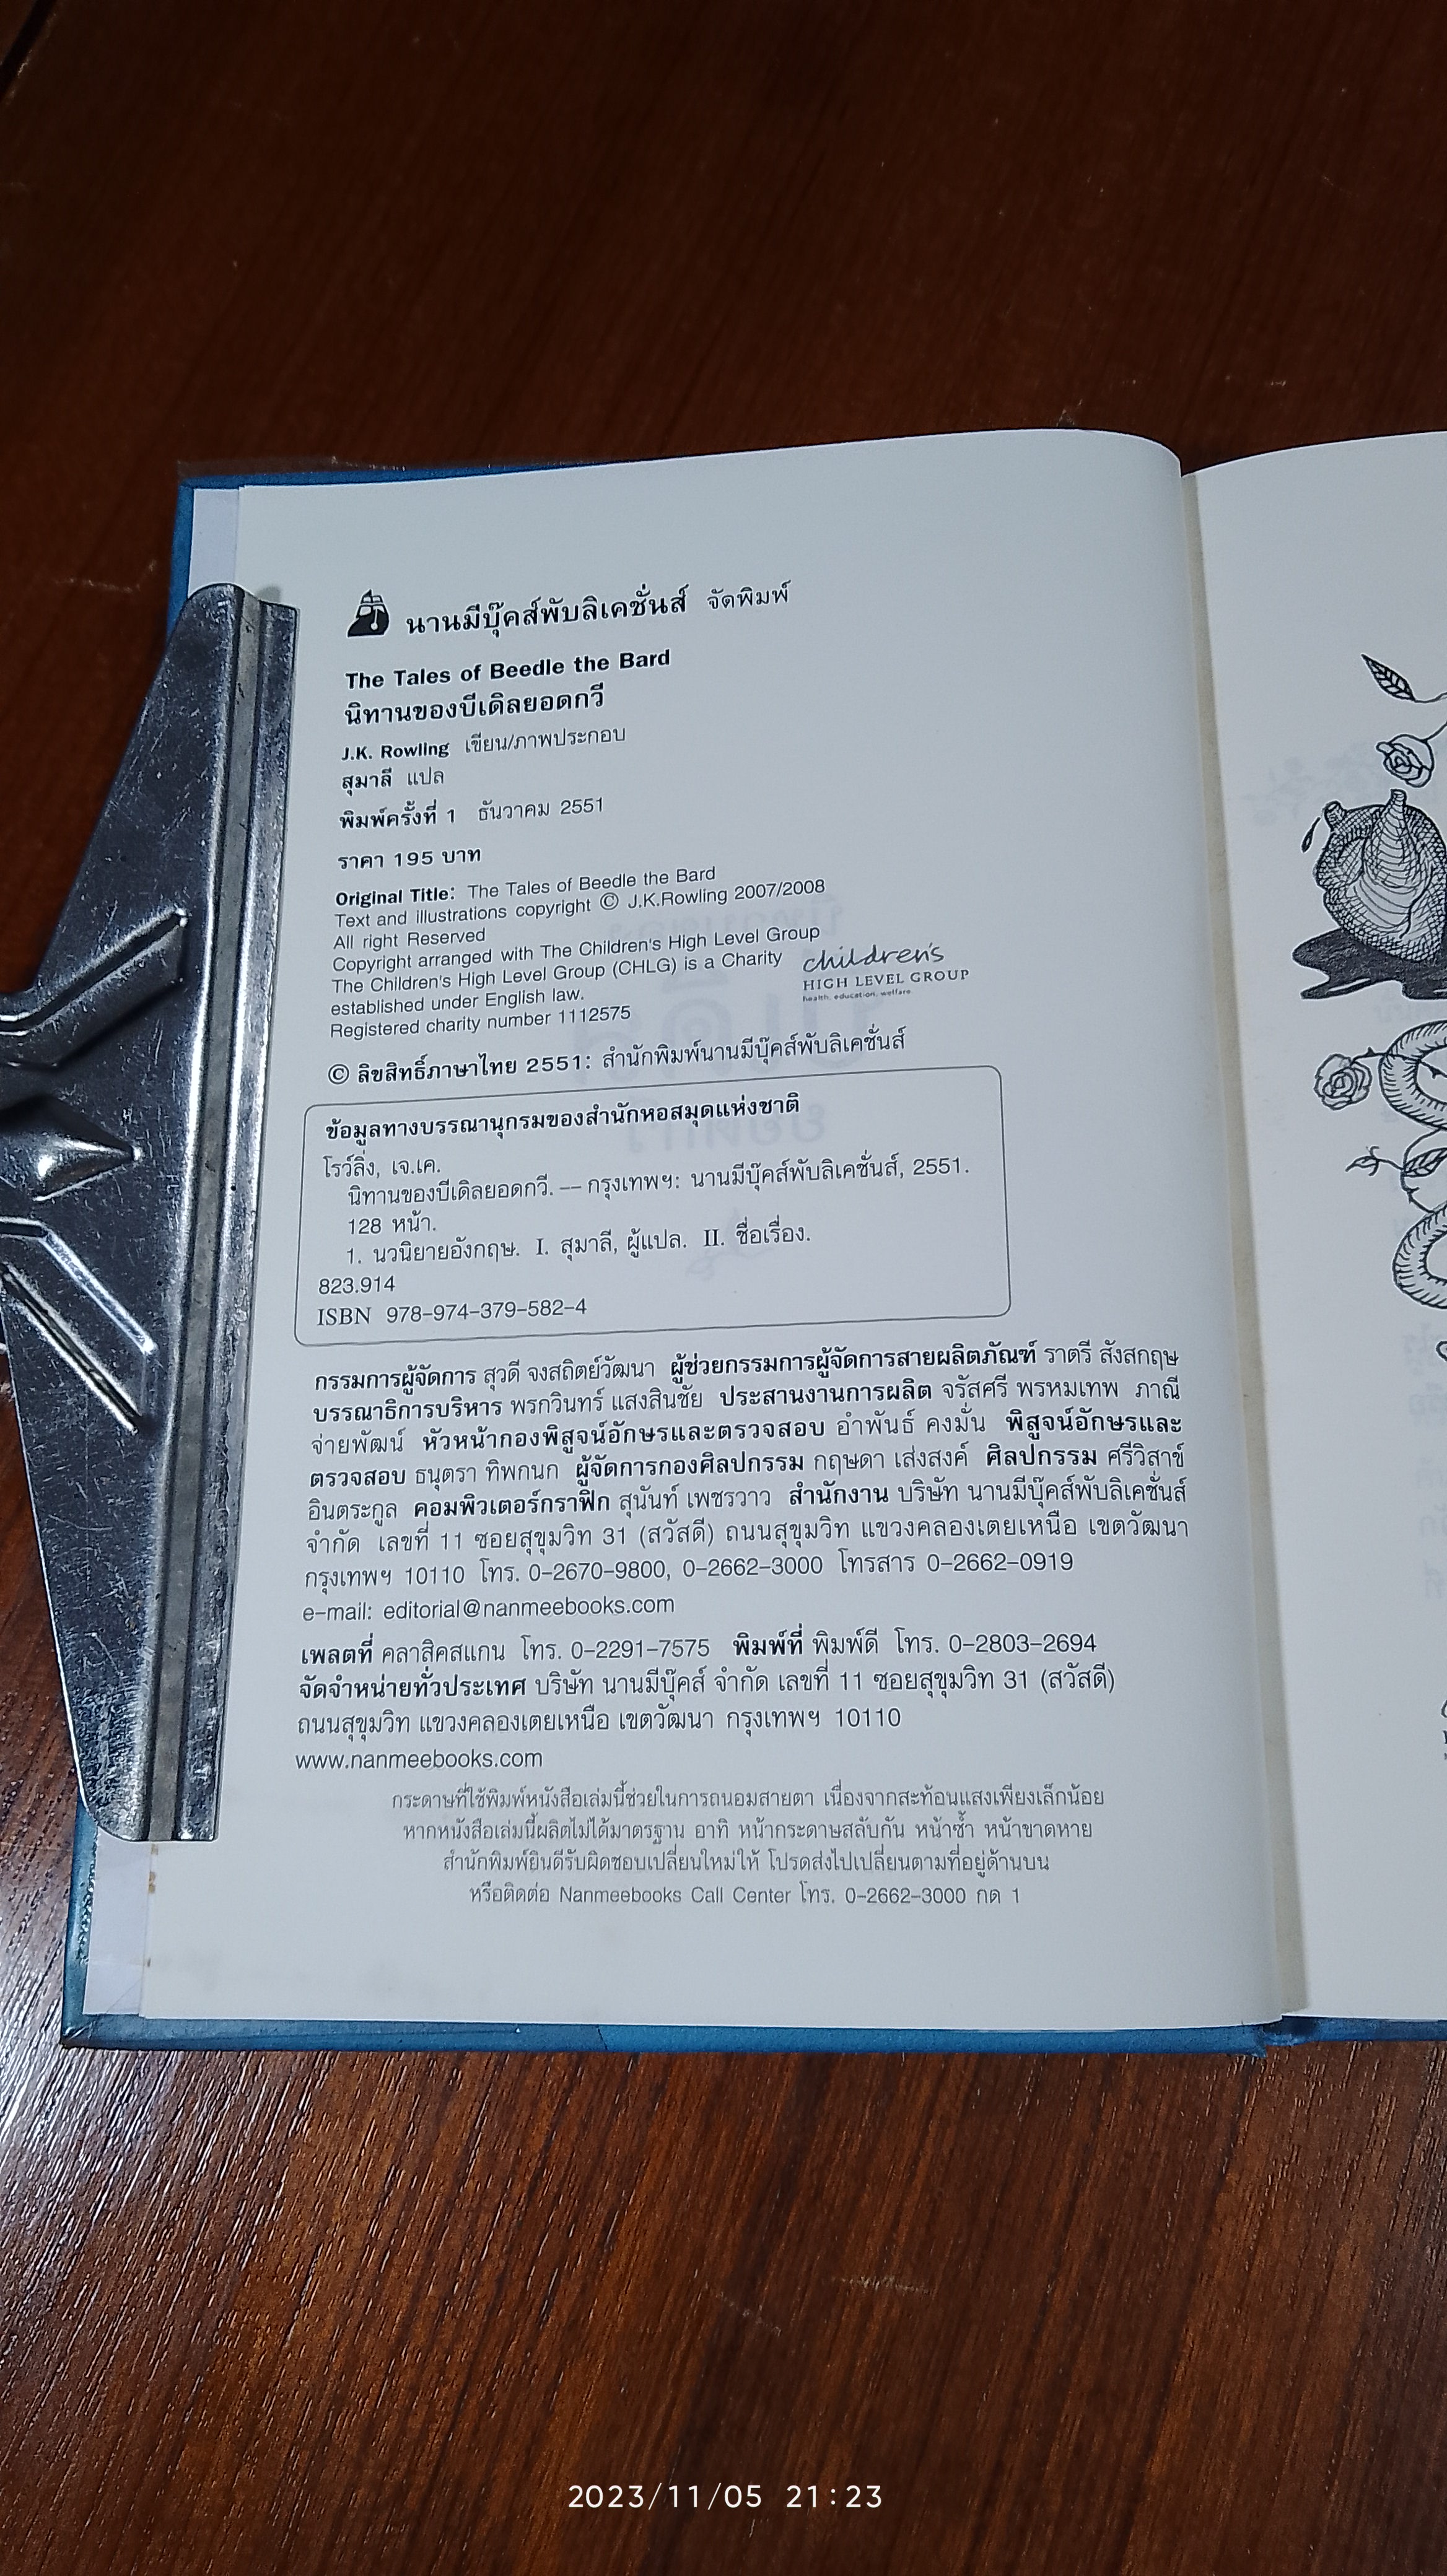 นานมีบุ๊คส์พับลิเคชั่นส์ จัดพิมพ์
The Tales of Beedle the Bard
นิทานของบีเดิลยอดกวี
J.K. Rowling เขียน/ภาพประกอบ
สุมาลี แปล
พิมพ์ครั้งที่ 1 ธันวาคม 2551
ราคา 195 บาท
Original Title: The Tales of Beedle the Bard
Text and illustrations copyright © J.K.Rowling 2007/2008
All right Reserved
Copyright arranged with The Children's High Level Group
The Children's High Level Group (CHLG) is a Charity
established under English law.
Registered charity number 1112575
children's
HIGH LEVEL GROUP
health. education. welfare.
© ลิขสิทธิ์ภาษาไทย 2551: สำนักพิมพ์นานมีบุ๊คส์พับลิเคชั่นส์
ข้อมูลทางบรรณานุกรมของสำนักหอสมุดแห่งชาติ
โรว์ลิ่ง, เจ.เค.
นิทานของบีเดิลยอดกวี. -- กรุงเทพฯ: นานมีบุ๊คส์พับลิเคชั่นส์, 2551.
128 หน้า.
1. นวนิยายอังกฤษ. I. สุมาลี, ผู้แปล. II. ชื่อเรื่อง.
823.914
ISBN 978-974-379-582-4
กรรมการผู้จัดการ สุวดี จงสถิตย์วัฒนา ผู้ช่วยกรรมการผู้จัดการสายผลิตภัณฑ์ ราตรี สังสกฤษ
บรรณาธิการบริหาร พรกวินทร์ แสงสินชัย ประสานงานการผลิต จรัสศรี พรหมเทพ ภาณี
จ่ายพัฒน์ หัวหน้ากองพิสูจน์อักษรและตรวจสอบ อำพันธ์ คงมั่น พิสูจน์อักษรและ
ตรวจสอบ ธนุตรา ทิพกนก ผู้จัดการกองศิลปกรรม กฤษดา เส่งสงค์ ศิลปกรรม ศรีวิสาข์
อินตระกูล คอมพิวเตอร์กราฟิก สุนันท์ เพชรวาว สำนักงาน บริษัท นานมีบุ๊คส์พับลิเคชั่นส์
จำกัด เลขที่ 11 ซอยสุขุมวิท 31 (สวัสดี) ถนนสุขุมวิท แขวงคลองเตยเหนือ เขตวัฒนา
กรุงเทพฯ 10110 โทร. 0-2670-9800, 0-2662-3000 โทรสาร 0-2662-0919
e-mail: editorial@nanmeebooks.com
เพลตที่ คลาสิคสแกน โทร. 0-2291-7575 พิมพ์ที่ พิมพ์ดี โทร. 0-2803-2694
จัดจำหน่ายทั่วประเทศ บริษัท นานมีบุ๊คส์ จำกัด เลขที่ 11 ซอยสุขุมวิท 31 (สวัสดี)
ถนนสุขุมวิท แขวงคลองเตยเหนือ เขตวัฒนา กรุงเทพฯ 10110
www.nanmeebooks.com
กระดาษที่ใช้พิมพ์หนังสือเล่มนี้ช่วยในการถนอมสายตา เนื่องจากสะท้อนแสงเพียงเล็กน้อย
หากหนังสือเล่มนี้ผลิตไม่ได้มาตรฐาน อาทิ หน้ากระดาษสลับกัน หน้าซ้ำ หน้าขาดหาย
สำนักพิมพ์ยินดีรับผิดชอบเปลี่ยนใหม่ให้ โปรดส่งไปเปลี่ยนตามที่อยู่ด้านบน
หรือติดต่อ Nanmeebooks Call Center โทร. 0-2662-3000 กด 1
2023/11/05 21:23